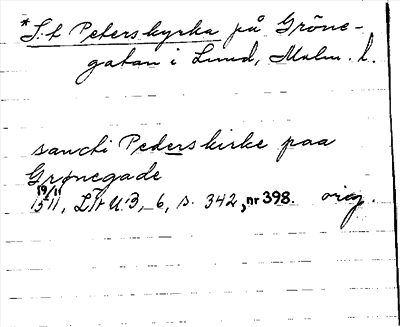 *S:t Peterskyrka på Gröne-
gatan i Lund, Malm. l.
sancti Pederskirke paa
Grønegade
19/11 1511, LÄU:3, 6, s. 342, nr 398. orig.